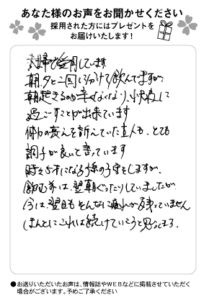 あなた様のお声をお聞かせください
採用された方にはプレゼントを
お届けいたします!
夫婦で愛用しています
朝夕と二回に分けて飲んですが
朝起きるのが辛くなくなり、快適に
過ごすことが出来ています
体の衰えを訴えていた主人も、とても
調子が良いと言っています
時々5才になる孫の子守をしますが、
飲む前は、翌朝ぐったりしていましたが
今は翌日もそんなに疲れが残っていません
ほんとにこれは続けていこうと思います。
●お送りいただいたお声は、情報誌やWEBなどに掲載させていただく
場合がございます。予めご了承ください